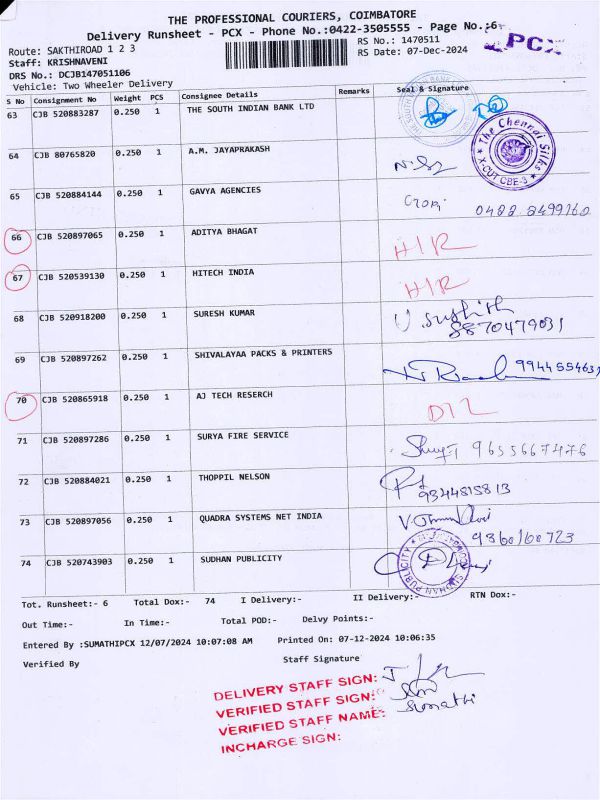 THE PROFESSIONAL COURIERS, COIMBATORE
Delivery Runsheet - PCX - Phone No.:0422-3505555 - Page No.:6
Route: SAKTHIROAD 1 2 3
RS No.: 1470511
PCX
Staff: KRISHNAVENI
RS Date: 07-Dec-2024
DRS No.: DCJB147051106
Vehicle: Two Wheeler Delivery
S No Consignment No Weight PCS Consignee Details Remarks Seal & Signature
63 CJB 520883287 0.250 1 THE SOUTH INDIAN BANK LTD
The Chennai Silks
X-CUT CBE-3
64 CJB 80765820 0.250 1 A.M. JAYAPRAKASH
65 CJB 520884144 0.250 1 GAVYA AGENCIES Gopi 0422 2499160
66 CJB 520897065 0.250 1 ADITYA BHAGAT H/R
67 CJB 520539130 0.250 1 HITECH INDIA H/R
68 CJB 520918200 0.250 1 SURESH KUMAR 8870479031
69 CJB 520897262 0.250 1 SHIVALAYAA PACKS & PRINTERS 9944554631
70 CJB 520865918 0.250 1 AJ TECH RESERCH
71 CJB 520897286 0.250 1 SURYA FIRE SERVICE 9655667476
72 CJB 520884021 0.250 1 THOPPIL NELSON 9344815813
73 CJB 520897056 0.250 1 QUADRA SYSTEMS NET INDIA 9360160723
74 CJB 520743903 0.250 1 SUDHAN PUBLICITY
SUDHAN PUBLICITY
Tot. Runsheet:- 6 Total Dox:- 74 I Delivery:- II Delivery:- RTN Dox:-
Out Time:- In Time:- Total POD:- Delvy Points:-
Entered By :SUMATHIPCX 12/07/2024 10:07:08 AM Printed On: 07-12-2024 10:06:35
Verified By Staff Signature
DELIVERY STAFF SIGN:
VERIFIED STAFF SIGN:
VERIFIED STAFF NAME: Sumathi
INCHARGE SIGN: